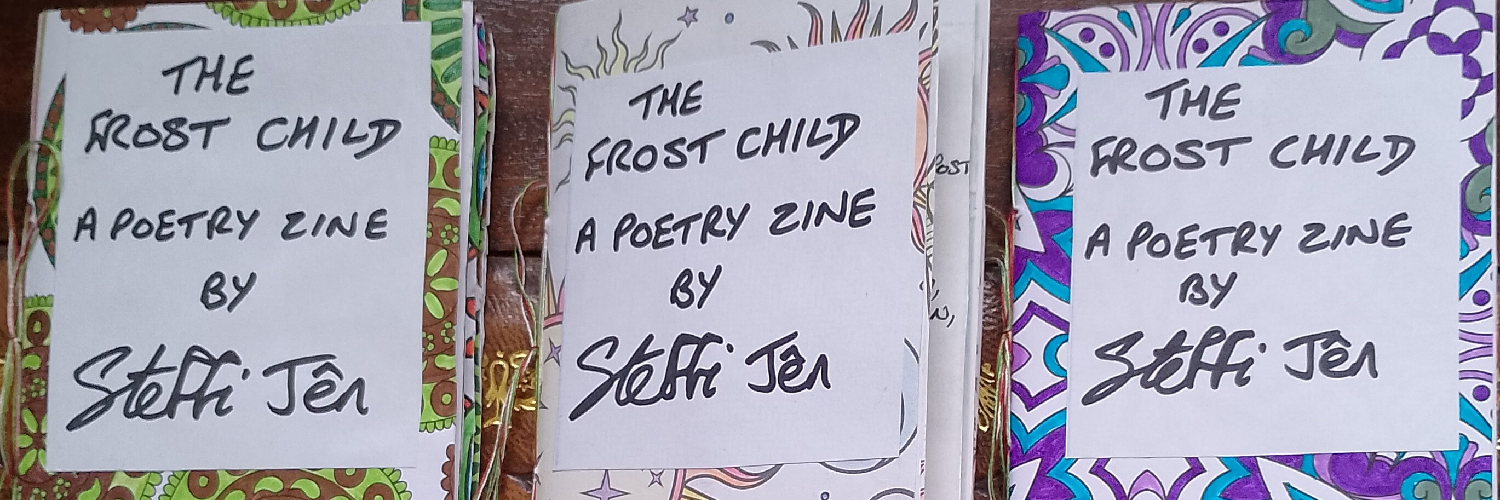 THE
FROST CHILD
A POETRY ZINE
BY
Steffi Jên
THE
FROST CHILD
A POETRY ZINE
BY
Steffi Jên
THE
FROST CHILD
A POETRY ZINE
BY
Steffi Jên